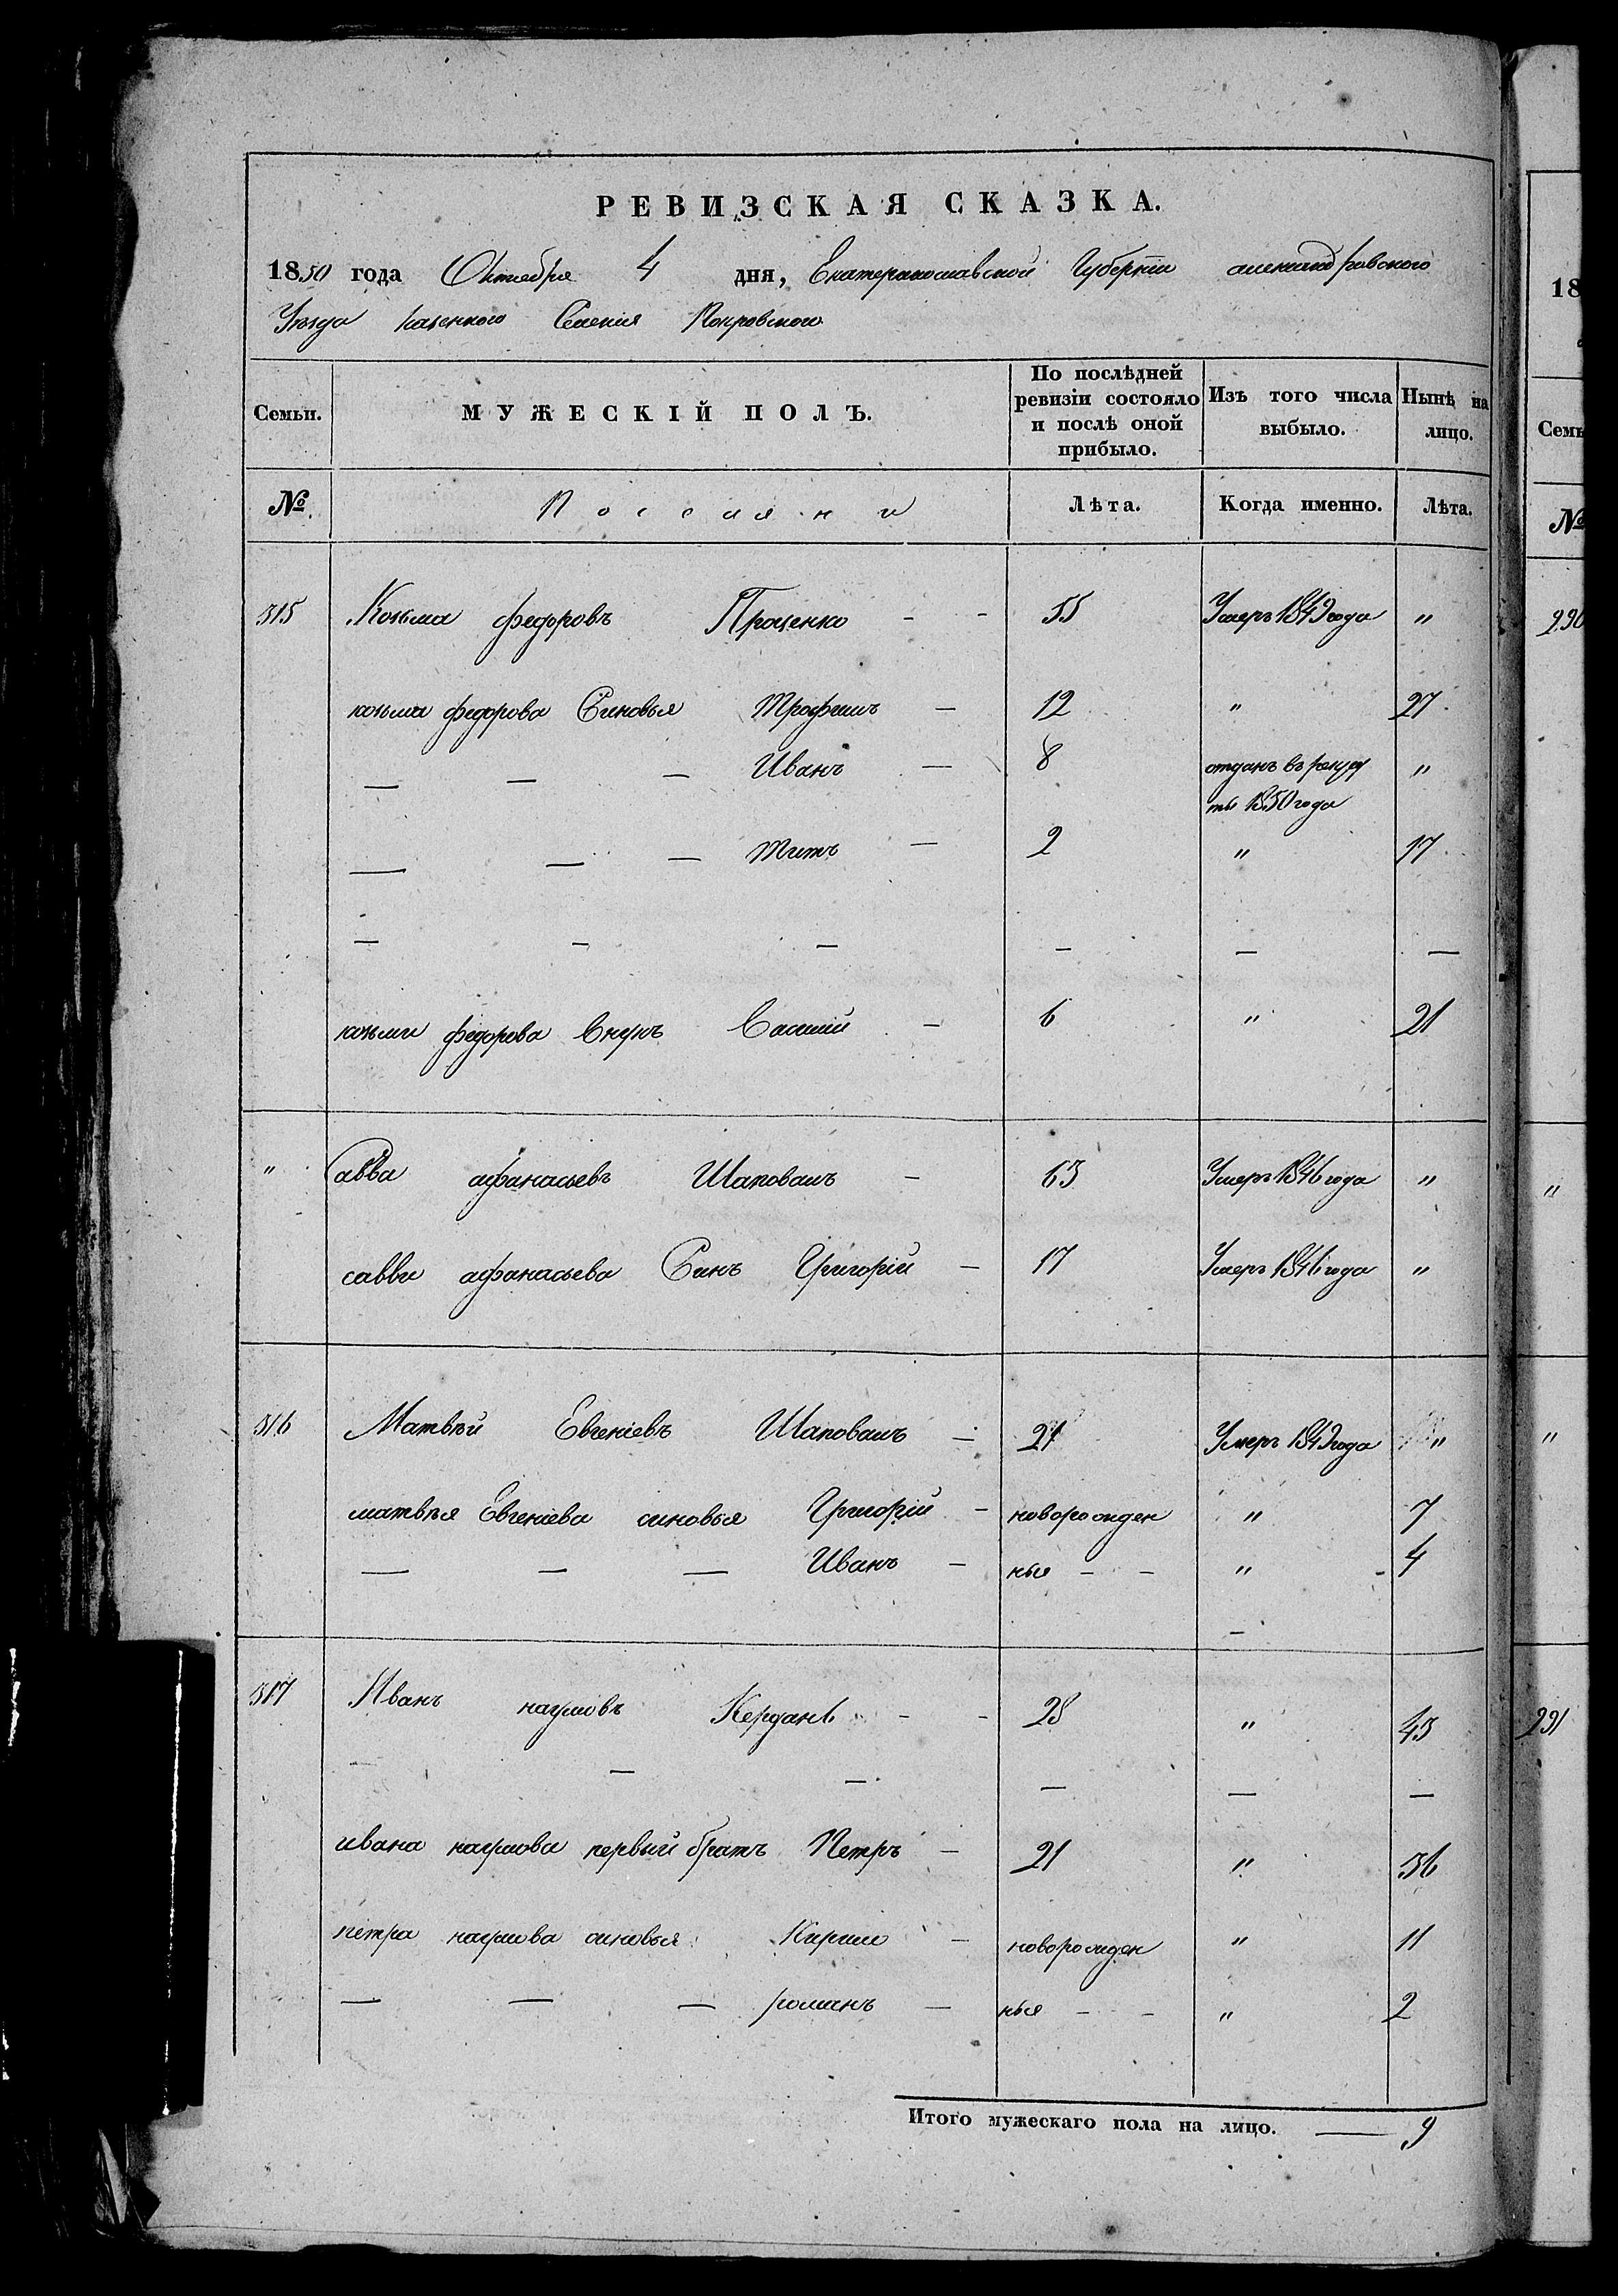 РЕВИЗСКАЯ СКАЗКА.
1850 года Октября 4 дня, Екатеринославской Губерніи александровского
Уѣзда казенного Селенія Покровского
Семьи. МУЖЕСКІЙ ПОЛЪ. По послѣдней ревизіи состояло и послѣ оной прибыло. Изъ того числа выбыло. Нынѣ на лицо.
№. Поселяни Лѣта. Когда именно. Лѣта.
315 Козьма федоровъ Проценко - - 55 Умеръ 1849 года "
козьма федорова Синовья Трофимъ — 12 " 27
— — — Иванъ — 8 отданъ въ рекру "
ты 1850 года
— — — Титъ — 2 " 17
— — — — — —
козьми федорова Внукъ Василий — 6 " 21
" Савва афанасьевъ Шаповалъ — 63 Умеръ 1846 года "
савви афанасьева Синъ Григорій — 17 Умеръ 1846 года "
316 Матвѣй Евгеніевъ Шаповалъ — 21 Умеръ 1849 года "
матвѣя Евгеніева синовья Григорій — новорожден " 7
— — — Иванъ — ныя — — " 4
317 Иванъ наумовъ - - 28 " 43
— — — — —
ивана наумова первый братъ Петръ — 21 " 36
петра наумова синовья Кирило — новорожден " 11
— — — романъ — ныя — — " 2
Итого мужескаго пола на лицо. — 9
18
Семь
№
290
"
"
291